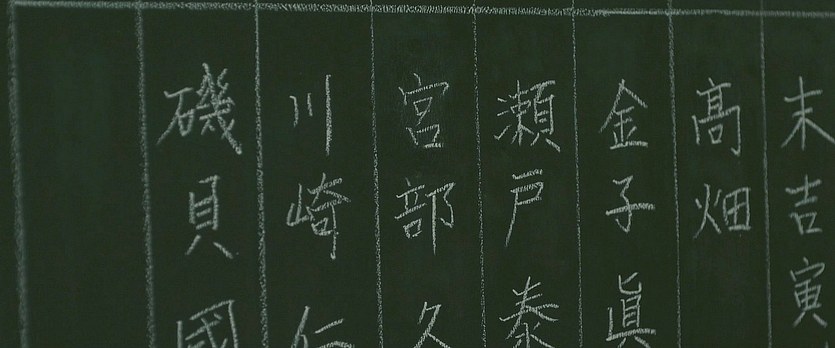 末吉寅
髙畑
金子眞
瀬戸泰
宮部久
川崎仁
磯貝國